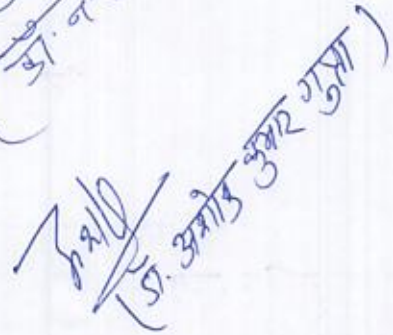 डॉ. न
(डॉ. अशोक कुमार गुप्ता)